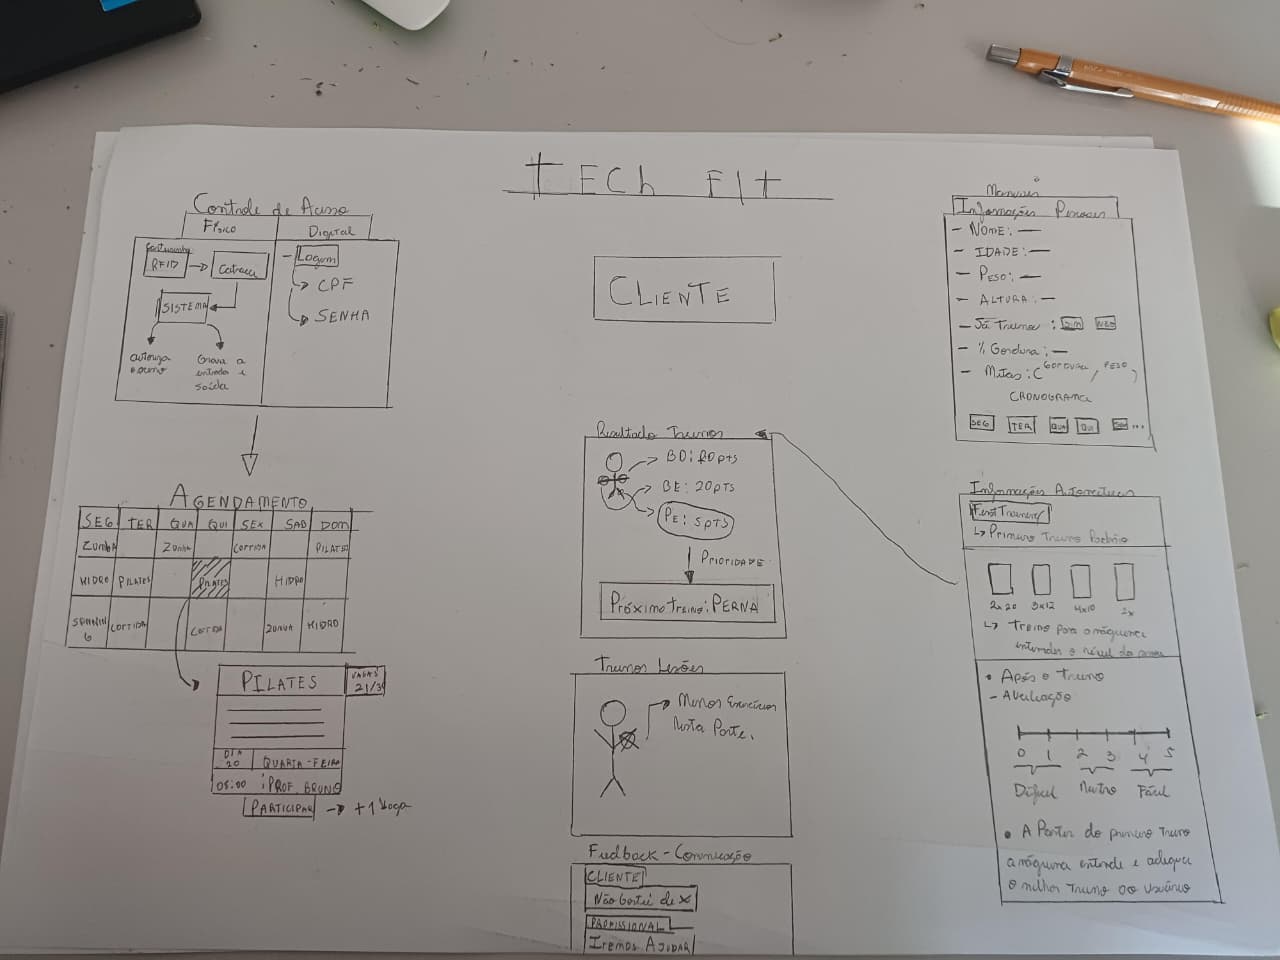 TECh FIT
Controle de Acesso
Físico
Digital
RFID
Catraca
SISTEMA
autoriza
Grava a
entrada e
saída
- Logum
CPF
SENHA
AGENDAMENTO
SEG TER QUA QUI SEX SAB DOM
ZUMBA ZUMBA CORRIDA PILATES
HIDRO PILATES PILATES HIDRO
SPINNIN
G
CORRIDA CORRIDA ZUMBA HIDRO
PILATES
VAGAS
21/3
DIA
20
QUARTA-FEIRA
08:00 : PROF. BRUNO
PARTICIPAR → +1 Vaga
CLIENTE
Resultado Treinos
BD: 20 pts
BE: 20PTS
PE: 5PTS
PRIORIDADE
Próximo treino: PERNA
Treinos Lesões
Menos Exercícios
Nesta Parte.
Feedback - Comunicação
CLIENTE
Não Gostei de X
PROFISSIONAL
Iremos AJUDAR
Manuais
Informações Pessoais
- NOME: —
- IDADE: —
- PESO: —
- ALTURA: —
- Já Treinou : SIM NÃO
- % Gordura : —
- Metas: ( GORDURA, PESO )
CRONOGRAMA
SEG TER QUA QUI SEX ...
Informações Automáticas
First Training
↳ Primeiro Treino Padrão
2x20 3x12 4x10 2x
↳ Treino para a máquina
entender o nível da pessoa
• Após o Treino
- Avaliação
0 1 2 3 4 5
Difícil Neutro Fácil
• A Partir do primeiro treino
a máquina entende e adequa
o melhor treino ao usuário